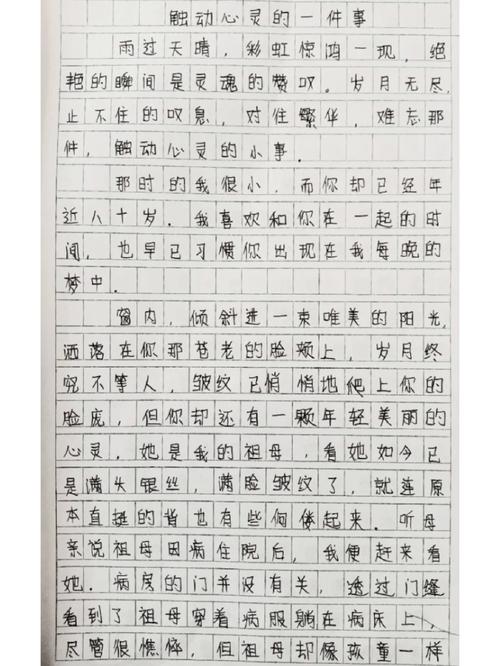 触动心灵的一件事
雨过天晴，彩虹惊鸿一现，绝
艳的瞬间是灵魂的赞叹。岁月无尽，
止不住的叹息，对住繁华，难忘那
件，触动心灵的小事.
那时的我很小，而你却已经年
近八十岁.我喜欢和你在一起的时
间，也早已习惯你出现在我每晚的
梦中.
窗内，倾斜进一束唯美的阳光，
洒落在你那苍老的脸颊上，岁月终
究不等人，皱纹已悄悄地爬上你的
脸庞，但你却还有一颗年轻美丽的
心灵.她是我的祖母，看她如今已
是满头银丝，满脸皱纹了，就连原
本直挺的背也有些佝偻起来.听母
亲说祖母因病住院后，我便赶来看
她.病房的门并没有关，透过门缝
看到了祖母穿着病服躺在病床上，
尽管很憔悴，但祖母却像孩童一样